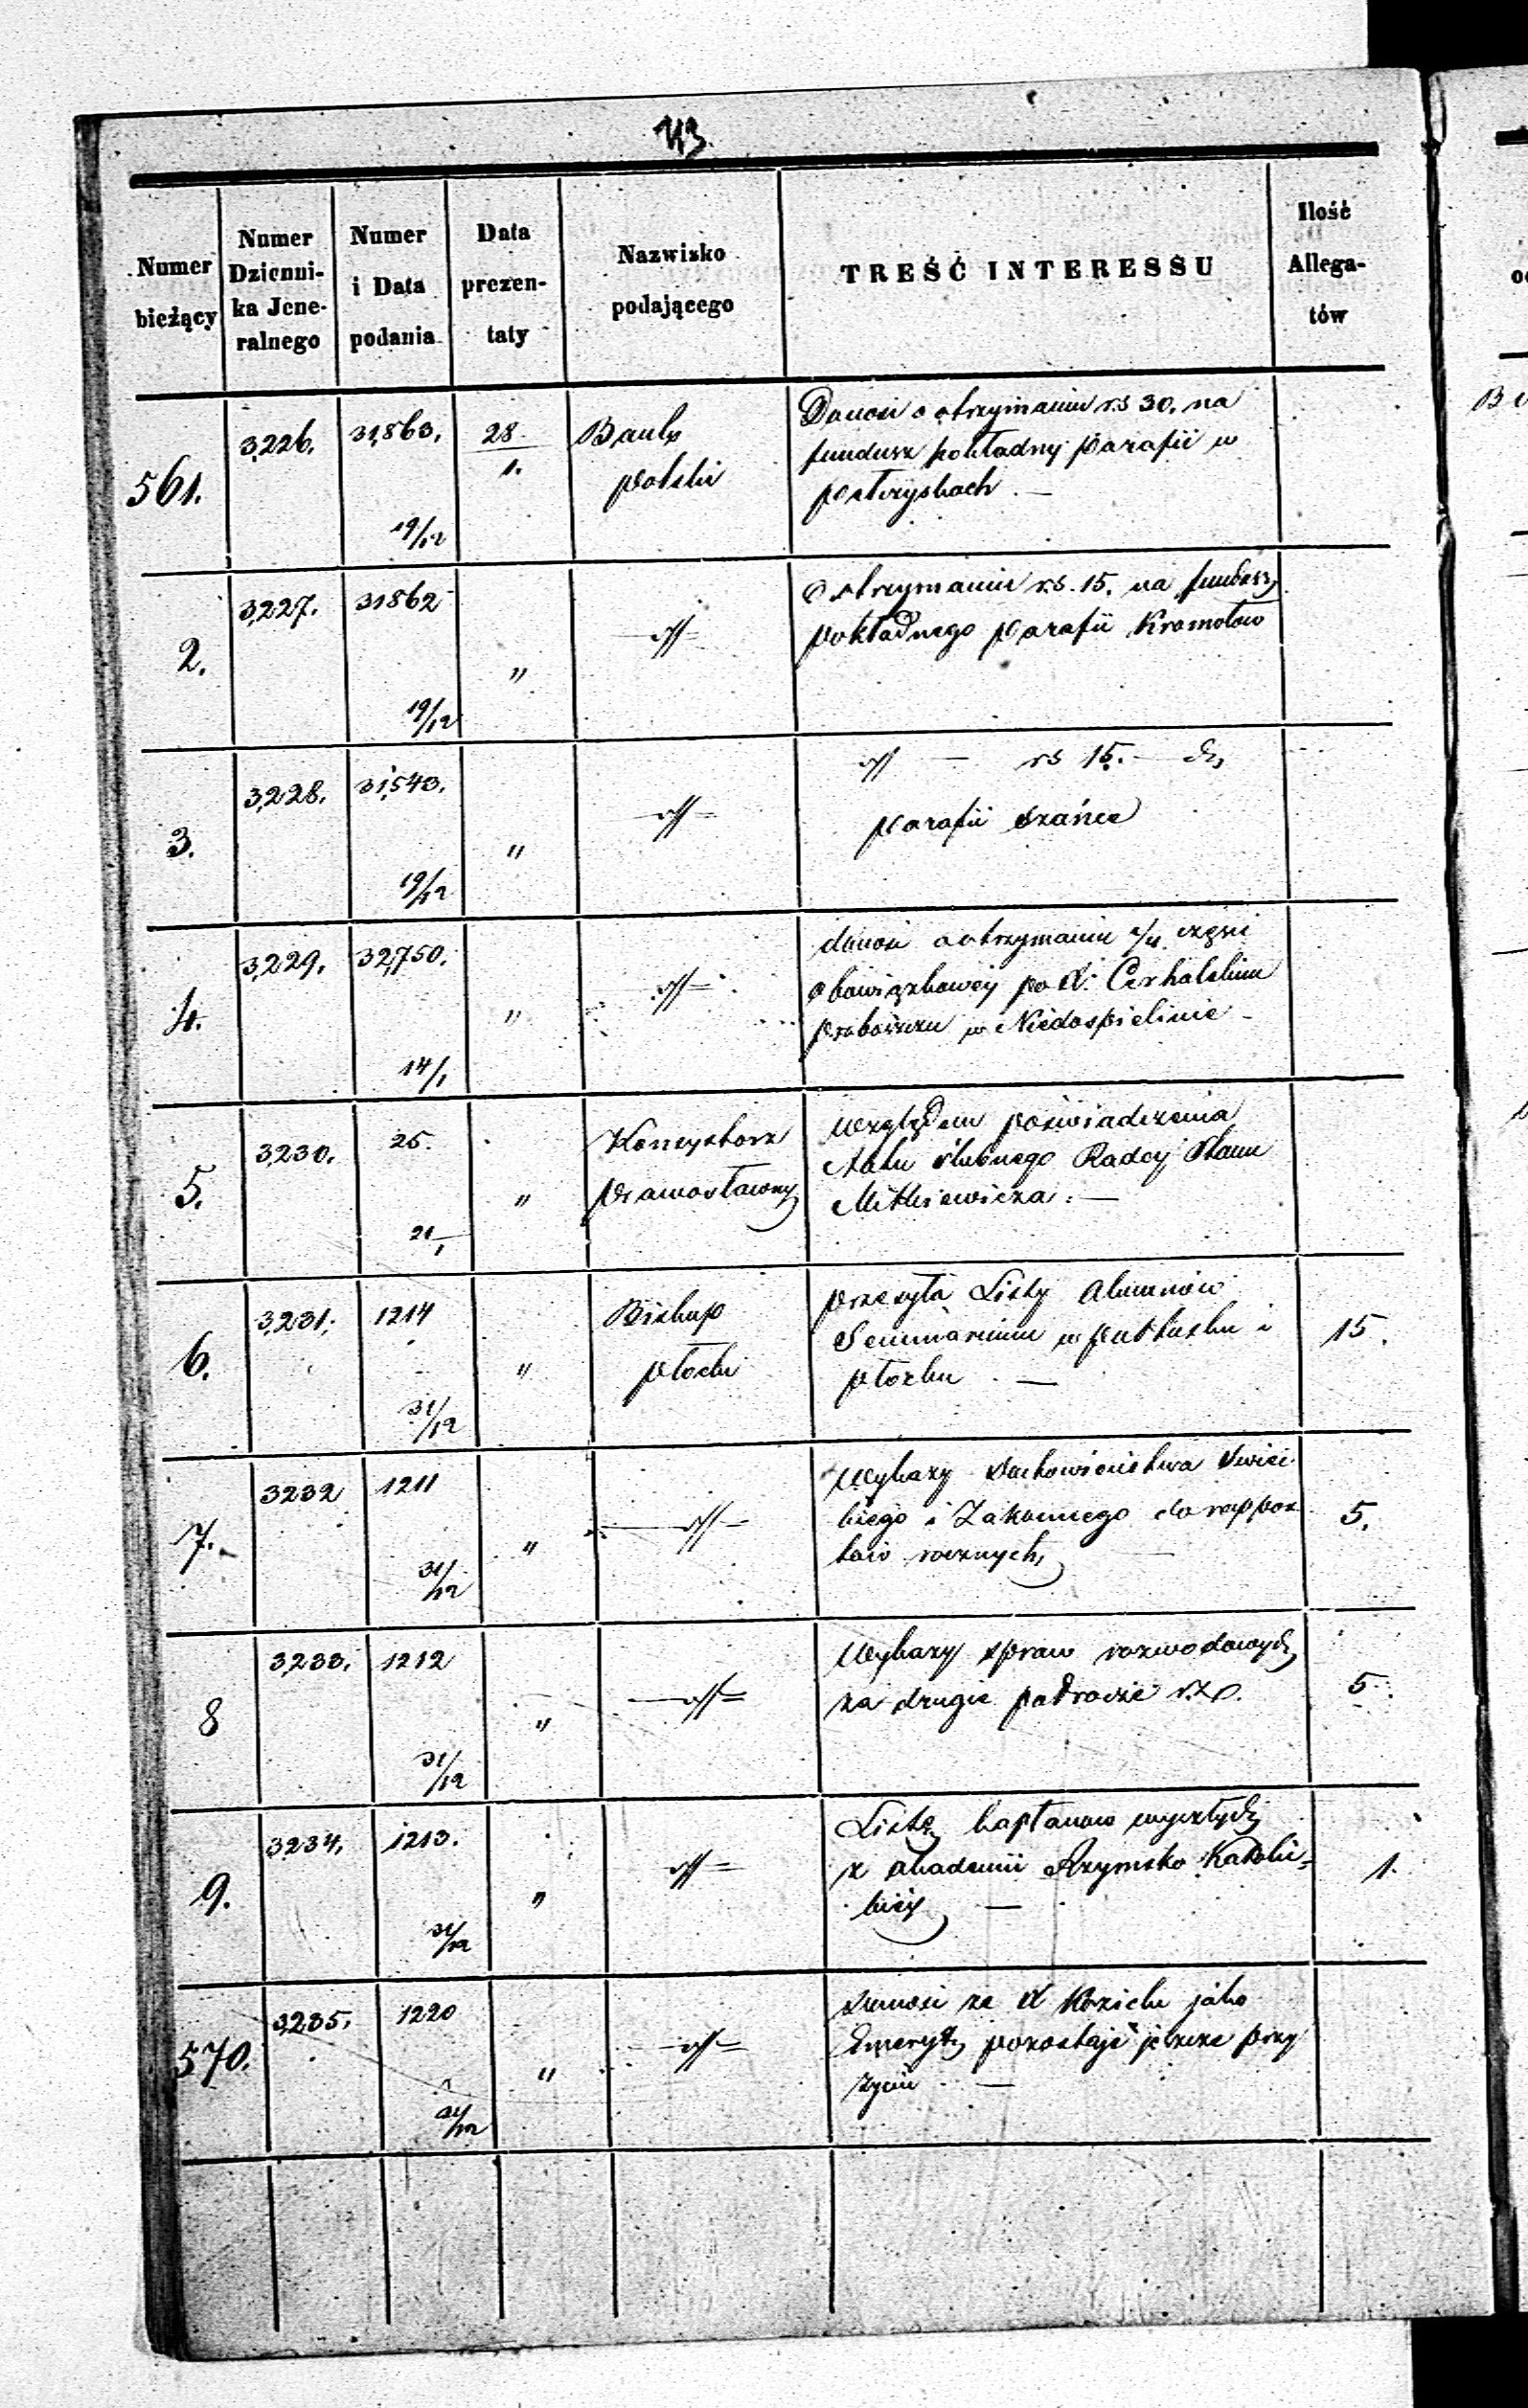 113.
Numer bieżący | Numer Dzienni- ka Jene- ralnego | Numer i Data podania | Data prezen- taty | Nazwisko podającego | TREŚĆ INTERESSU | Ilość Allega- tów
561. | 3,226. | 31,863. 19/12 | 28. 1. | Bank Polski | Donosi o otrzymaniu rs 30. na
fundusz pokładny parafii w
2. | 3,227. | 31862 19/12 | " | | O otrzymaniu rs. 15. na fundusz
pokładnego parafii Kromołow
3. | 3,228. | 31,543. 19/12 | " | | rs 15. –
parafii Szańce
4. | 3,229. | 32,750. 14/1 | " | | donosi o otrzymaniu części
obowiązkowéj po X.
Proboszczu w Niedospielinie
5. | 3,230. | 25. 21/1 | " | Konsystorz Prawosławny | Względem poświadczenia
Aktu ślubnego Radcy Stanu
Mitkiewicza. —
6. | 3,231. | 1214 31/12 | " | Biskup Płocki | Przesyła Listy Alumnów | 15.
Seminarium w Pułtusku i
Płocku —
7. | 3232 | 1211 31/12 | " | | Wykazy Duchowieństwa Świec- | 5.
kiego i Zakonnego do rappor-
tów rocznych,
8 | 3,233. | 1212 31/12 | " | | Wykazy spraw rozwodowych | 5.
za drugie półrocze
9. | 3234. | 1213. 31/12 | " | | Listę kapłanow wyszłych | 1.
z Akademii Rzymsko Katolic-
kiéj —
570. | 3,235. | 1220 31/12 | " | | Donosi że X Kozicki jako
Emeryt pozostaje jeszcze przy
życiu —